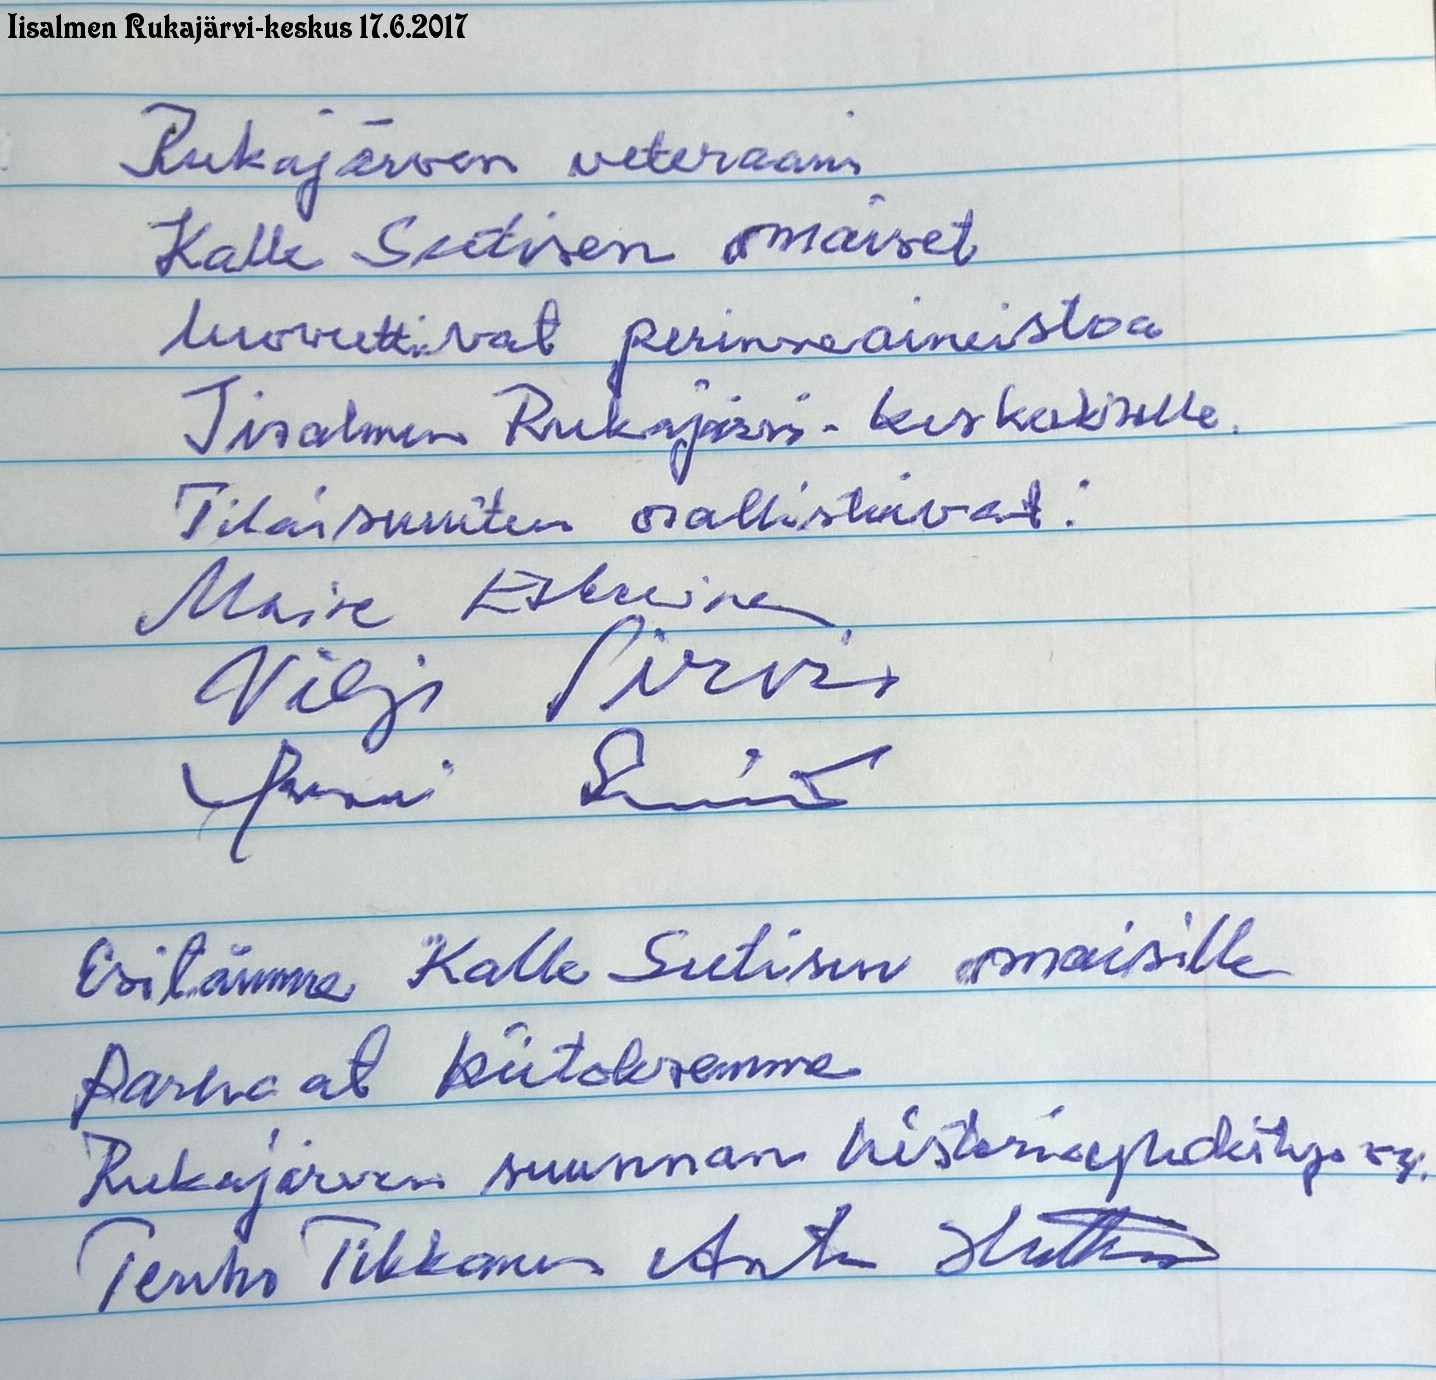 Iisalmen Rukajärvi-keskus 17.6.2017
Rukajärven veteraani
Kalle Sutisen omaiset
luovuttivat perinneaineistoa
Iisalmen Rukajärvi-keskukselle.
Tilaisuuteen osallistuivat:
Maire
Viljo Pirvis
Esitämme Kalle Sutisen omaisille
parhaat kiitoksemme
Rukajärven suunnan historiayhdistys ry.
Tenho Tikkanen